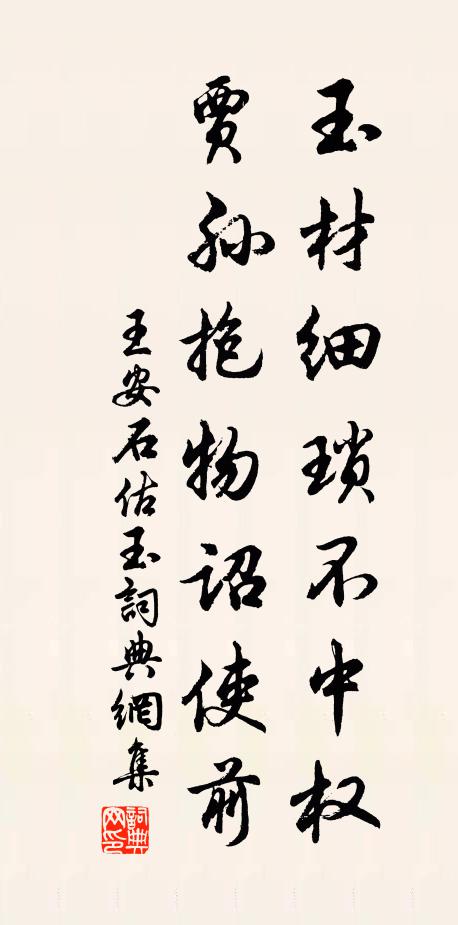 玉材细琐不中权
贾孙抱物诏使前
王安石估玉詞典網集
詞典网印